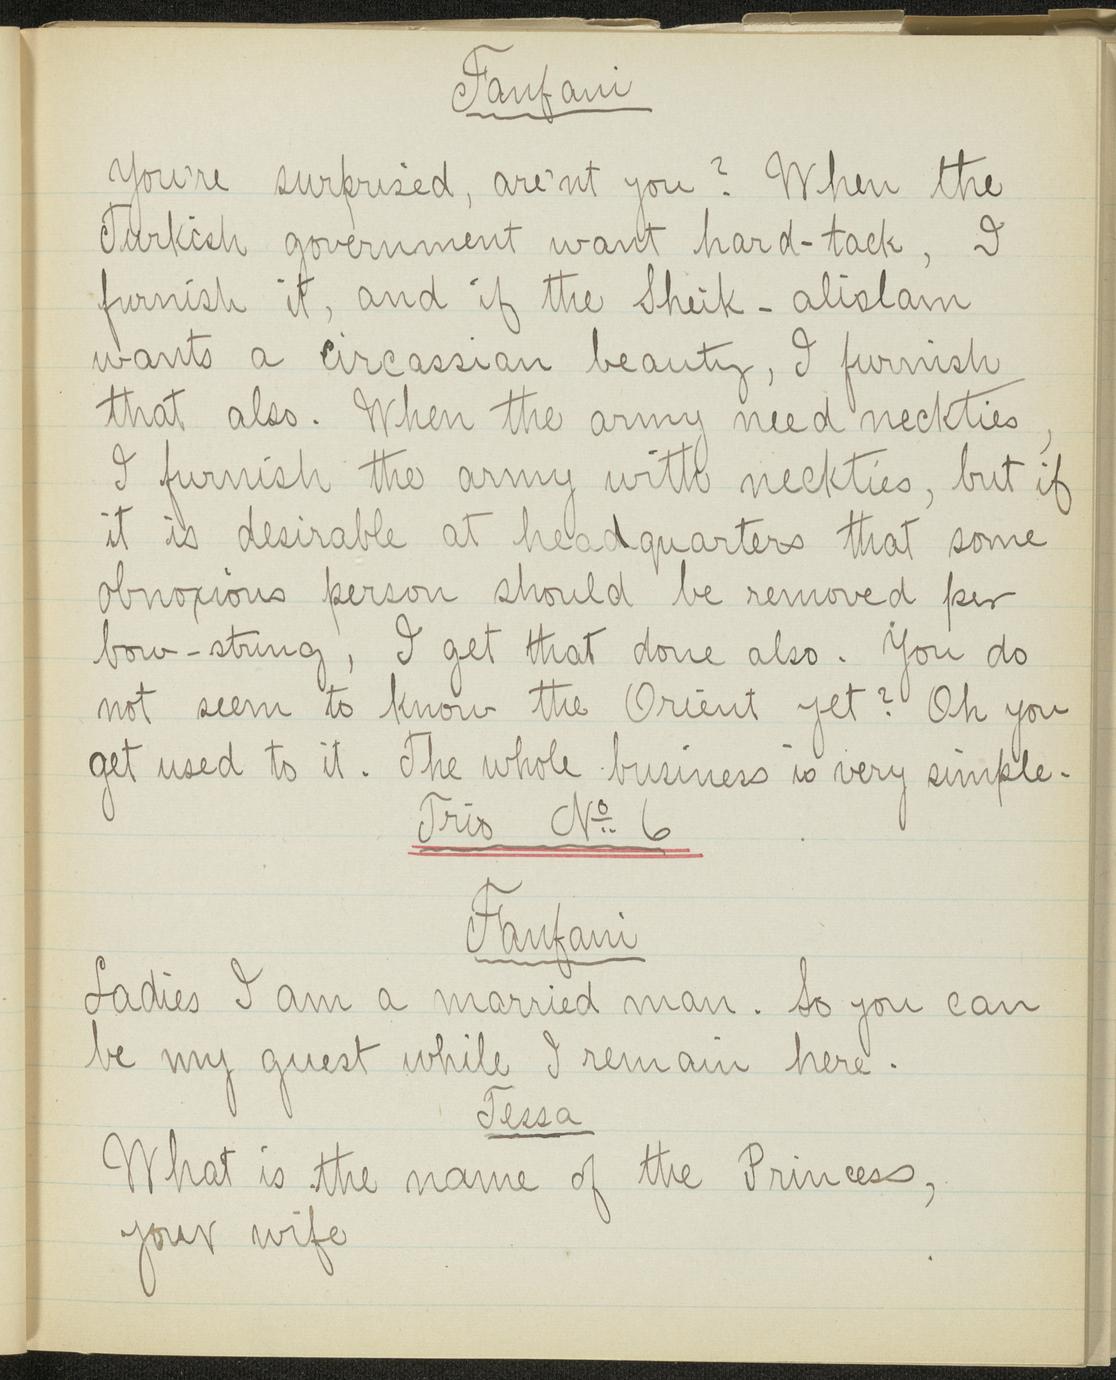 Fanfani
You're surprised, are'nt you? When the
Turkish government want hard-tack, I
furnish it, and if the Sheik-alislam
wants a circassian beauty, I furnish
that also. When the army need neckties,
I furnish the army with neckties, but if
it is desirable at headquarters that some
obnoxious person should be removed per
bow-string, I get that done also. You do
not seem to know the Orient yet? Oh you
get used to it. The whole business is very simple.
Trio No 6
Fanfani
Ladies I am a married man. So you can
be my guest while I remain here.
Tessa
What is the name of the Princess,
your wife